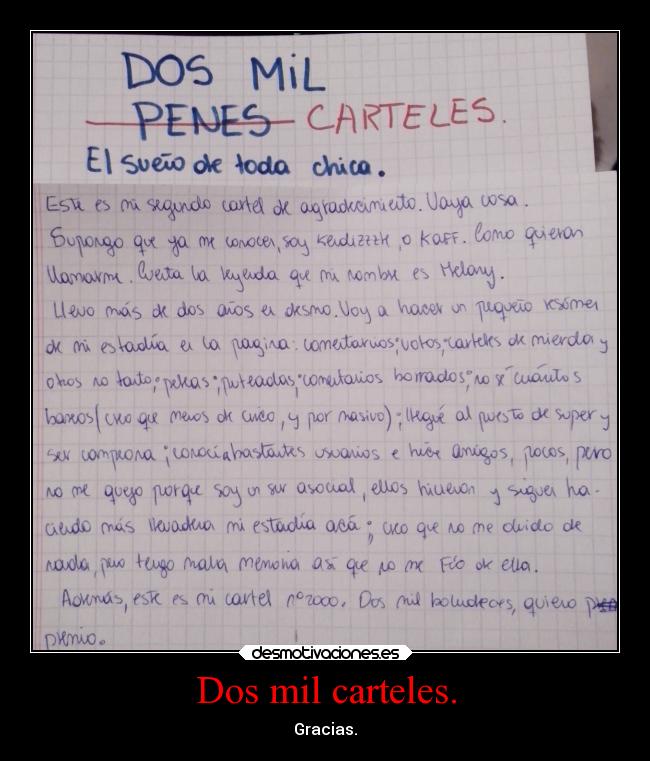 DOS MIL
PENES CARTELES.
El sueño de toda chica.
Este es mi segundo cartel de agradecimiento. Vaya cosa.
Supongo que ya me conocen, soy Kendizzzk, o KAFF. Como quieran
llamarme. Cuenta la leyenda que mi nombre es Melany.
Llevo más de dos años en desmo. Voy a hacer un pequeño resúmen
de mi estadía en la pagina: comentarios; votos; carteles de mierda y
otros no tanto; peleas; puteadas; comentarios borrados; no sé cuántos
baneos (creo que menos de cinco, y por masivo); llegué al puesto de super y
ser campeona; conocí a bastantes usuarios e hice amigos, pocos, pero
no me quejo porque soy un ser asocial, ellos hicieron y siguen ha-
ciendo más llevadera mi estadía acá; creo que no me olvido de
nada, pero tengo mala memoria así que no me fío de ella.
Además, este es mi cartel n°2000. Dos mil boludeces, quiero
premio.
desmotivaciones.es
Dos mil carteles.
Gracias.